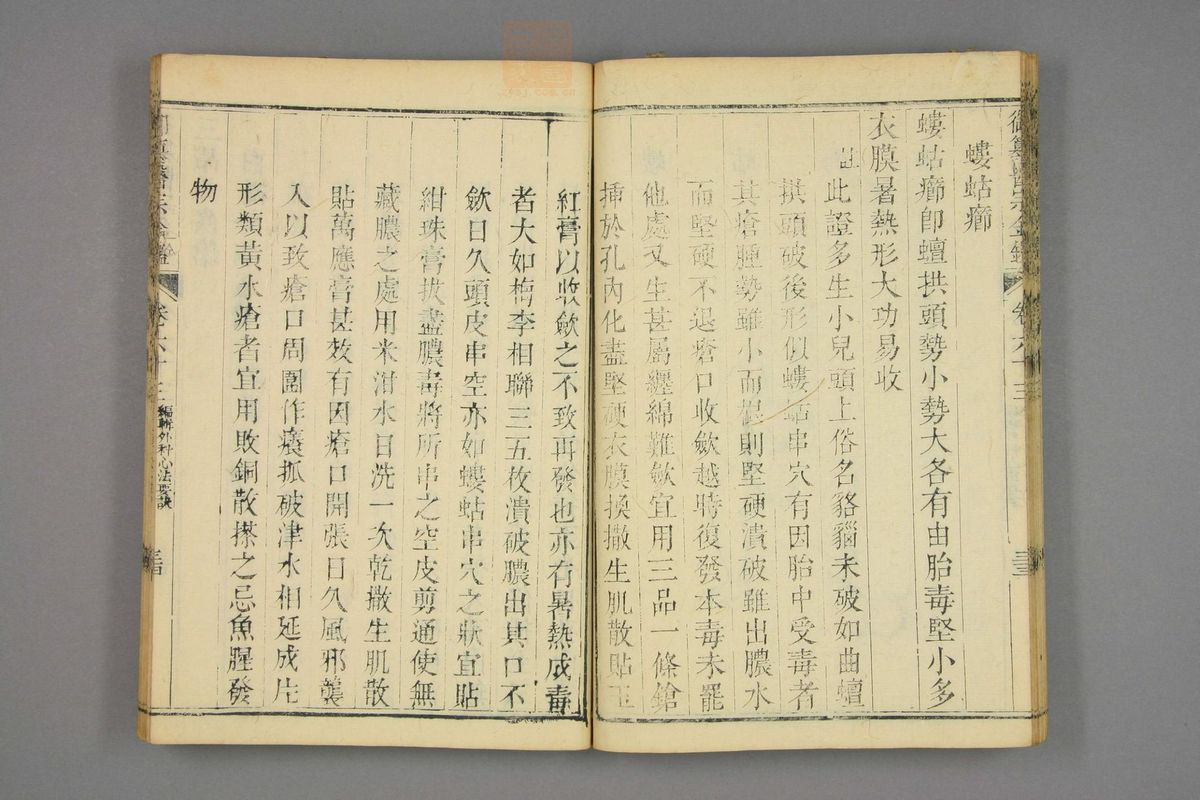 螻蛄癤
螻蛄癤卽蟺拱頭勢小勢大各有由胎毒堅小多
衣膜暑熱形大功易收
註此證多生小兒頭上俗名貉貓未破如曲蟺
拱頭破後形似螻蛄串穴有因胎中受毒者
其瘡腫勢雖小而根則堅硬潰破雖出膿水
而堅硬不退瘡口收斂越時復發本毒未罷
他處又生甚屬纏綿難斂宜用三品一條鎗
揷於孔內化盡堅硬衣膜換撒生肌散貼玉
紅膏以收斂之不致再發也亦有暑熱成毒
者大如梅李相聯三五枚潰破膿出其口不
斂日久頭皮串空亦如螻蛄串穴之狀宜貼
紺珠膏拔盡膿毒將所串之空皮剪通使無
藏膿之處用米泔水日洗一次乾撒生肌散
貼萬應膏甚效有因瘡口開張日久風邪襲
入以致瘡口周圍作癢抓破津水相延成片
形類黃水瘡者宜用敗銅散搽之忌魚腥發
物
卷六十三
編輯外科心法要訣